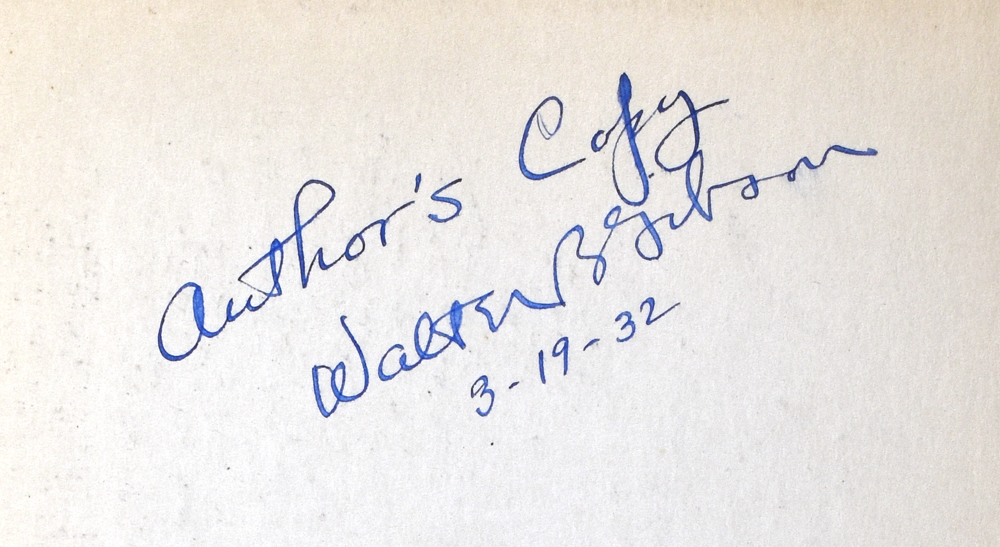 Author's Copy
Walter B Gibson
3-19-32